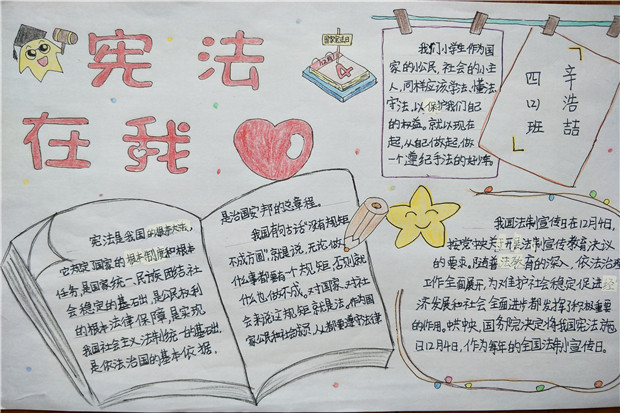 宪法
在我
国家宪法日
12月
4
我们小学生作为国
家的小公民,社会的小主
人,同样应该学法、懂法、
守法,以保护我们自己
的权益。就以现在
起,从自己做起,做
一个遵纪手法的好
辛浩喆
四(2)班
宪法是我国的根本大法,
它规定国家的根本制度和根本
任务,是国家统一、民族团结、社
会稳定的基础,是公民权利
的根本法律保障,是实现
我国社会主义法制统一的基础,
是依法治国的基本依据,
是治国安邦的总章程。
我国有句古话"没有规矩
不成方圆"就是说,无论做
什么事都要有个规矩,否则就
什么也做不成。对国家、对社
会来说立规矩就是法,作为国
家公民和社会成员,人人都要遵守法律
我国法制宣传日在12月4日,
按党中央关于开展法制宣传教育决议
的要求。随着法教育的深入,依法治
工作全面展开,为了维护社会稳定促进经
济发展和社会全面进步都发挥了积极重要
的作用。中共中央、国务院决定将我国宪法施
日12月4日,作为每年的全国法制宣传日。